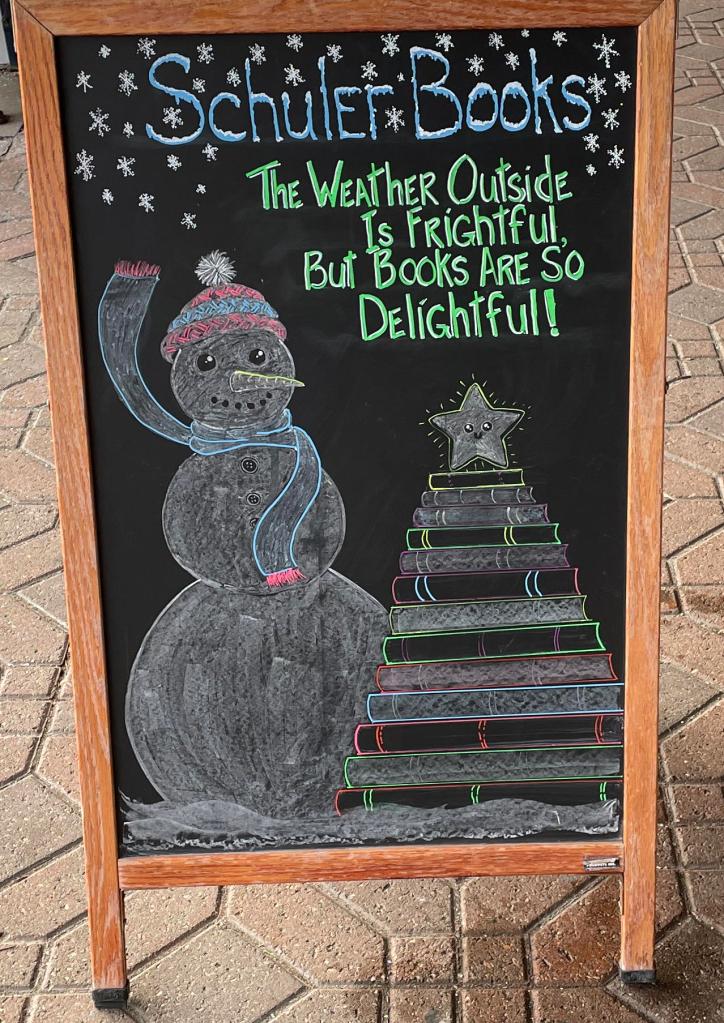 Schuler Books
The Weather Outside
Is Frightful,
But Books Are So
Delightful!